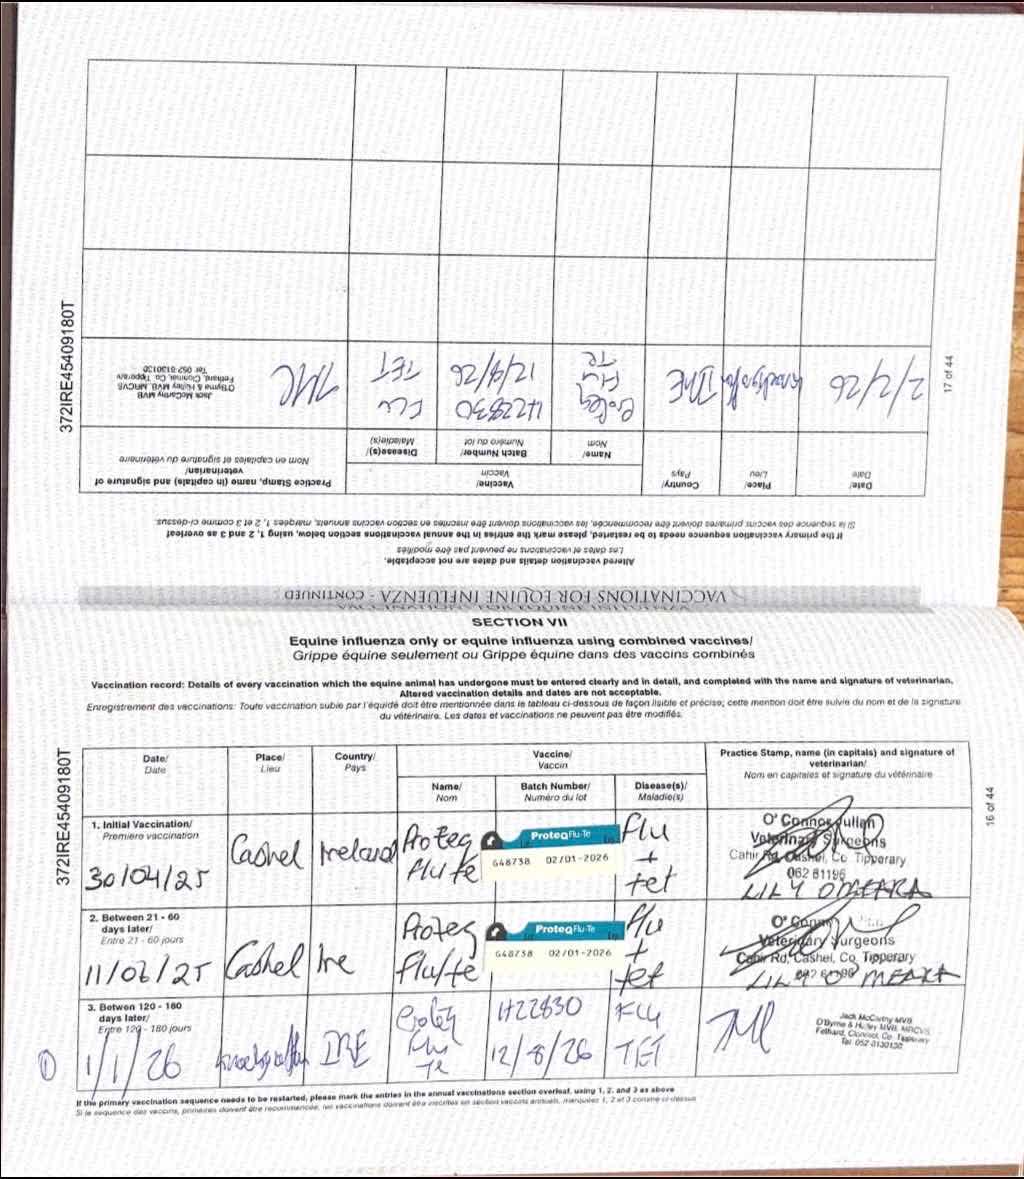 372IRE45409180T
17 of 44
VACCINATIONS FOR EQUINE INFLUENZA - CONTINUED
Altered vaccination details and dates are not acceptable.
Les dates et vaccinations ne peuvent pas être modifiés
If the primary vaccination sequence needs to be restarted, please mark the entries in the annual vaccinations section below, using 1, 2 and 3 as overleaf
Si la sequence des vaccins primaires doivent être recommencés, les vaccinations doivent être inscrites en section vaccins annuels, marquées 1, 2 et 3 comme ci-dessus.
Date/
Date
Place/
Lieu
Country/
Pays
Vaccine/
Vaccin
Name/
Nom
Batch Number/
Numéro du lot
Disease(s)/
Maladie(s)
Practice Stamp, name (in capitals) and signature of
veterinarian/
Nom en capitales et signature du vétérinaire
2/2/26
IRE
Proteq
Flu
Te
H22830
12/8/26
FLU
TET
Jack McCarthy MVB
O'Byrne & Hulley MVB, MRCVS
Fethard, Clonmel, Co. Tipperary
Tel: 052-6130130
SECTION VII
Equine influenza only or equine influenza using combined vaccines/
Grippe équine seulement ou Grippe équine dans des vaccins combinés
Vaccination record: Details of every vaccination which the equine animal has undergone must be entered clearly and in detail, and completed with the name and signature of veterinarian.
Altered vaccination details and dates are not acceptable.
Enregistrement des vaccinations: Toute vaccination subie par l'équidé doit être mentionnée dans le tableau ci-dessous de façon lisible et précise; cette mention doit être suivie du nom et de la signature
du vétérinaire. Les dates et vaccinations ne peuvent pas être modifiés.
372IRE45409180T
16 of 44
Date/
Date
Place/
Lieu
Country/
Pays
Vaccine/
Vaccin
Name/
Nom
Batch Number/
Numéro du lot
Disease(s)/
Maladie(s)
Practice Stamp, name (in capitals) and signature of
veterinarian/
Nom en capitales et signature du vétérinaire
1. Initial Vaccination/
Premiere vaccination
30/04/25
Cashel
Ireland
Proteq
flu/te
ProteqFlu-Te
G48738 02/01-2026
Flu
+
tet
O' Connor Julian
Veterinary Surgeons
Cahir Rd, Cashel, Co Tipperary
062 61196
LILY O'MEARA
2. Between 21 - 60
days later/
Entre 21 - 60 jours
11/06/25
Cashel
Ire
Proteq
flu/te
ProteqFlu-Te
G48738 02/01-2026
Flu
+
tet
O' Connor
Veterinary Surgeons
Cahir Rd, Cashel, Co Tipperary
062 61196
LILY O MEARA
3. Betwen 120 - 180
days later/
Entre 120 - 180 jours
1/1/26
IRE
Proteq
Flu
Te
H22830
12/8/26
FLU
TET
Jack McCarthy MVB
O'Byrne & Hulley MVB, MRCVS
Fethard, Clonmel, Co. Tipperary
Tel: 052-6130130
If the primary vaccination sequence needs to be restarted, please mark the entries in the annual vaccinations section overleaf, using 1, 2 and 3 as above
Si la sequence des vaccins, primaires doivent être recommencés, les vaccinations doivent être inscrites en section vaccins annuels, marquées 1, 2 et 3 comme ci-dessus